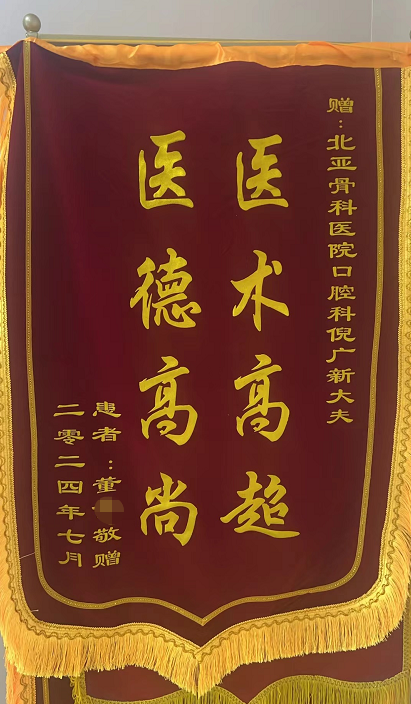 赠：北亚骨科医院口腔科倪广新大夫
医术高超
医德高尚
患者：董 敬赠
二零二四年七月